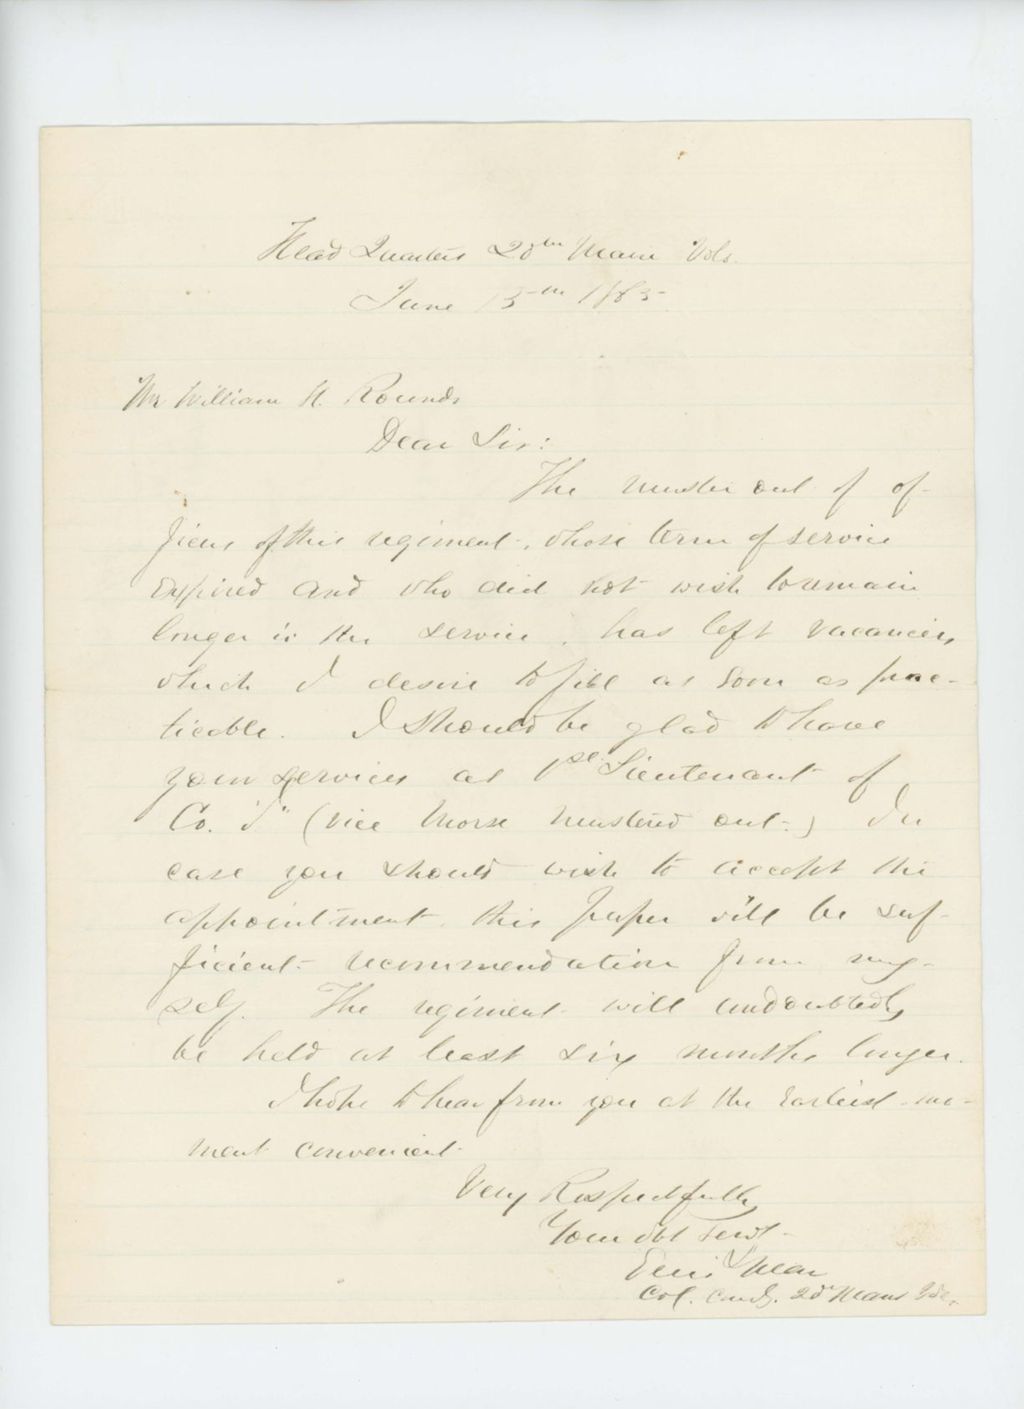 Head Quarters 20th Maine Vols.
June 15th 1865
Mr William H. Rounds
Dear Sir:
The muster out of of-
ficers of this regiment, whose term of service
expired and who did not wish to remain
longer in the service, has left vacancies
which I desire to fill as soon as prac-
ticable. I should be glad to have
your services as 1st Lieutenant of
Co. "I" (vice Morse mustered out.) In
case you should wish to accept the
appointment, this paper will be suf-
ficient recommendation from my-
self. The regiment will undoubtedly
be held at least six months longer.
I hope to hear from you at the earliest mo-
ment convenient
Very Respectfully
Your obt Servt
Ellis Spear
Col. Comdg. 20th Maine Vols.